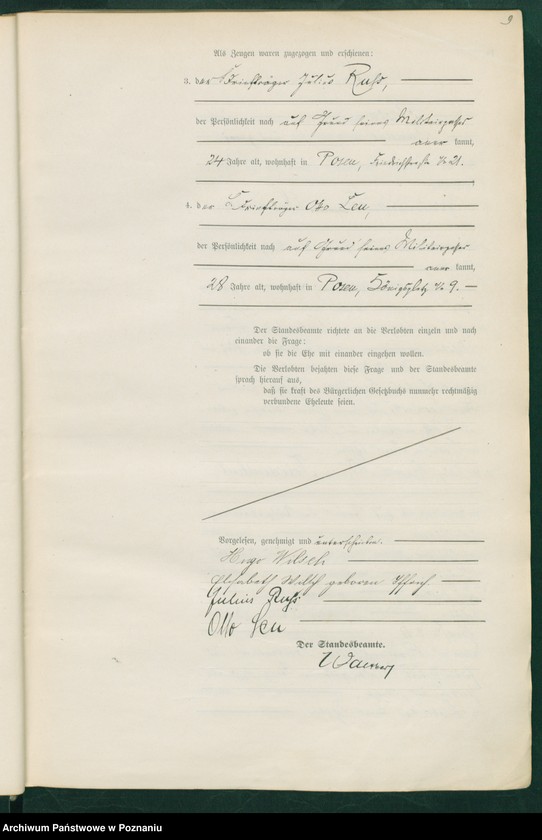 9
Als Zeugen waren zugezogen und erschienen:
3. der Briefträger Julius Ruhs,
der Persönlichkeit nach auf Grund seines Militärpasses
aner kannt,
24 Jahre alt, wohnhaft in Posen, Friedrichstraße № 21.
4. der Briefträger Otto Leu,
der Persönlichkeit nach auf Grund seines Militärpasses
aner kannt,
28 Jahre alt, wohnhaft in Posen, Königsplatz № 9.
Der Standesbeamte richtete an die Verlobten einzeln und nach
einander die Frage:
ob sie die Ehe mit einander eingehen wollen.
Die Verlobten bejahten diese Frage und der Standesbeamte
sprach hierauf aus,
daß sie kraft des Bürgerlichen Gesetzbuchs nunmehr rechtmäßig
verbundene Eheleute seien.
Vorgelesen, genehmigt und unterschrieben.
Hugo Welsch
Elisabeth Welsch geboren
Julius Ruhs
Otto Leu
Der Standesbeamte.
Archiwum Państwowe w Poznaniu